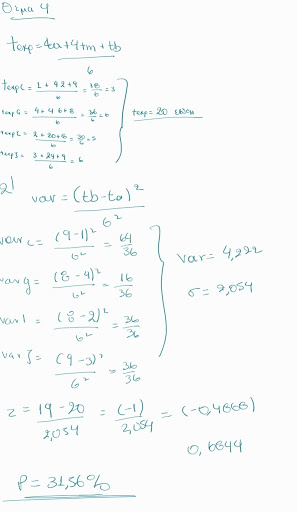 Θεμα 4
texp = ta + 4tm + tb / 6
texp c = 1 + 4·2 + 9 / 6 = 18/6 = 3
texp G = 4 + 4·6 + 8 / 6 = 36/6 = 6
2 + 20 + 8 / 6 = 30/6 = 5
texp J = 3 + 24 + 9 / 6 = 6
texp = 20
2)
var = (tb - ta)² / 6²
var c = (9-1)² / 6² = 64/36
var g = (8-4)² / 6² = 16/36
var l = (8-2)² / 6² = 36/36
var J = (9-3)² / 6² = 36/36
var = 4,222
σ = 2,054
z = 19 - 20 / 2,054 = (-1) / 2,054 = (-0,4868)
0,6844
P = 31,56%